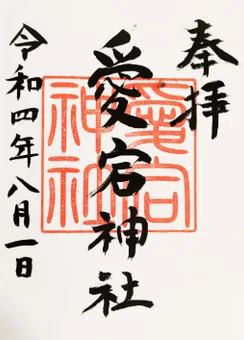 奉拝
愛宕神社
愛宕
神社
令和四年八月一日